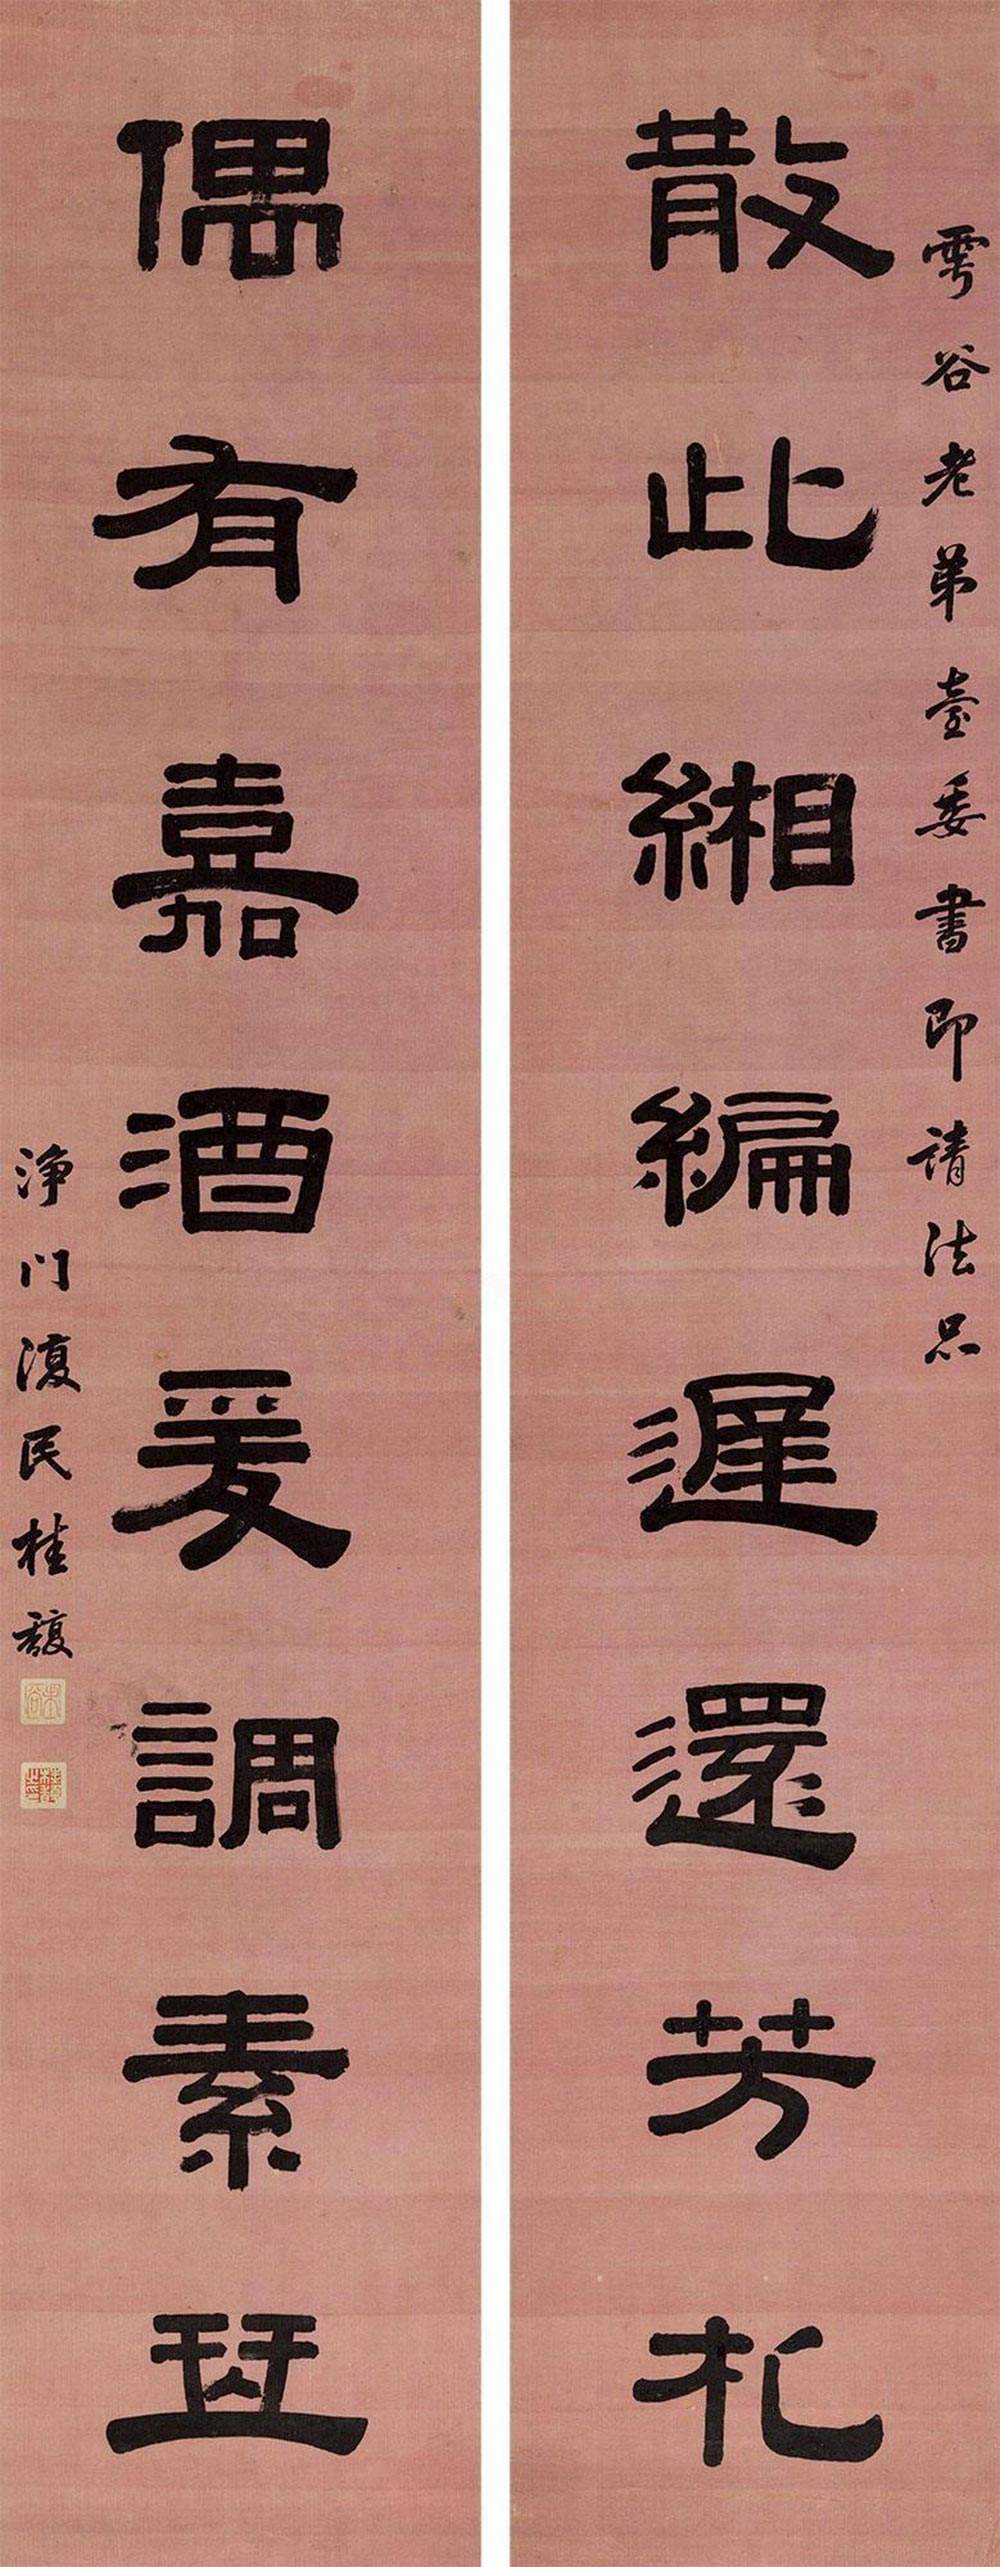 雩谷老弟臺委書即請法正
散此緗編遲還芳札
偶有嘉酒爰調素琴
淨門復民桂馥